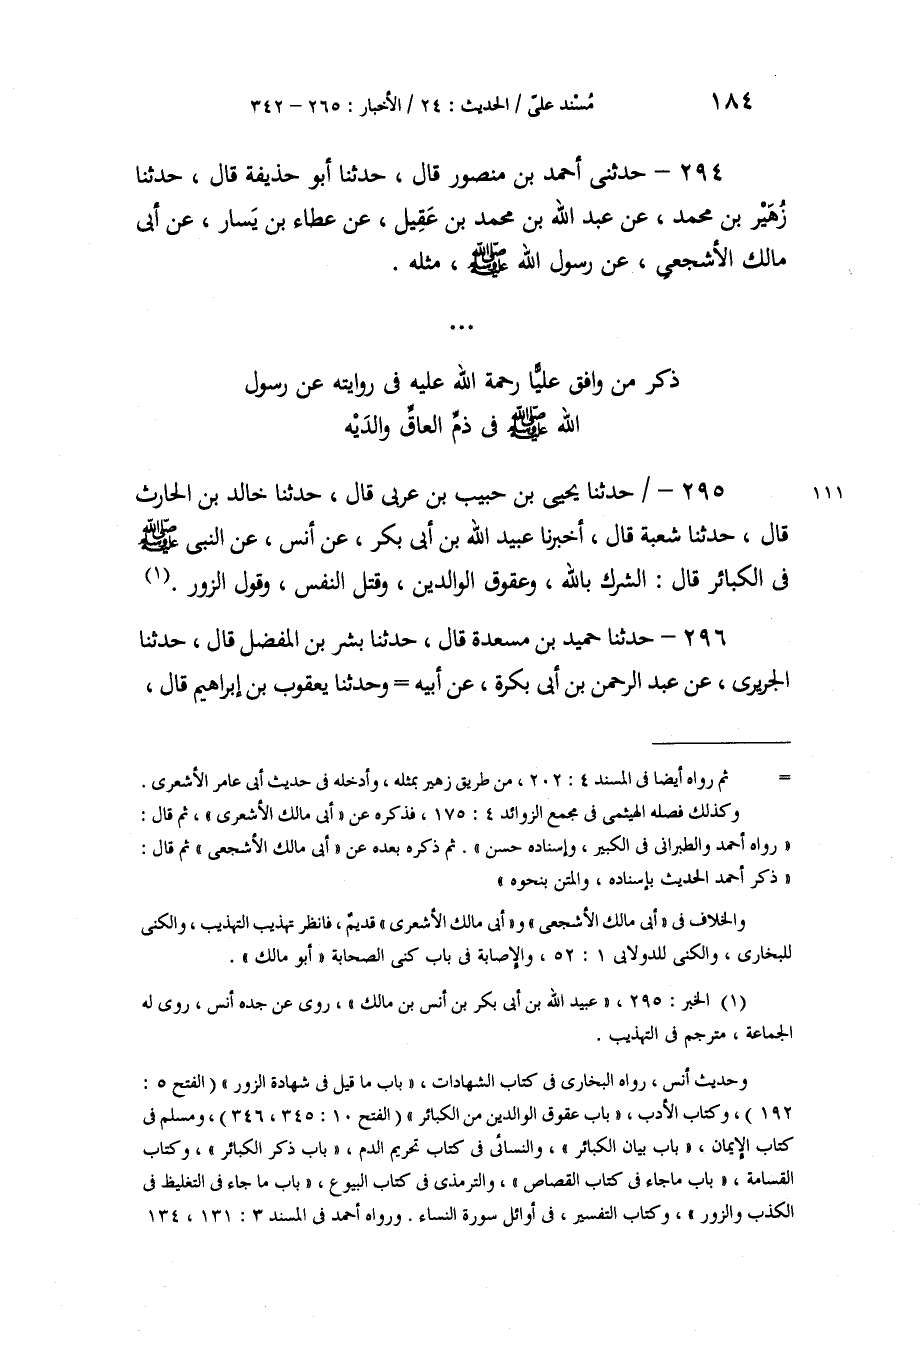 ١٨٤
مُسْند علىّ / الحديث : ٢٤ / الأخبار : ٢٦٥ – ٣٤٢
٢٩٤ – حدثنى أحمد بن منصور قال ، حدثنا أبو حذيفة قال ، حدثنا
زُهَيْر بن محمد ، عن عبد الله بن محمد بن عَقِيل ، عن عطاء بن يَسار ، عن أبى
مالك الأشجعي ، عن رسول الله ﷺ ، مثله .
...
ذكر من وافق عليًّا رحمة الله عليه فى روايته عن رسول
الله ﷺ فى ذمِّ العاقِّ والدَيْه
١١١
٢٩٥ – / حدثنا يحيى بن حبيب بن عربى قال ، حدثنا خالد بن الحارث
قال ، حدثنا شعبة قال ، أخبرنا عبيد الله بن أبى بكر ، عن أنس ، عن النبى ﷺ
فى الكبائر قال : الشرك بالله ، وعقوق الوالدين ، وقتل النفس ، وقول الزور .(١)
٢٩٦ – حدثنا حميد بن مسعدة قال ، حدثنا بشر بن المفضل قال ، حدثنا
الجريرى ، عن عبد الرحمن بن أبى بكرة ، عن أبيه = وحدثنا يعقوب بن إبراهيم قال ،
= ثم رواه أيضا فى المسند ٤ : ٢٠٢ ، من طريق زهير بمثله ، وأدخله فى حديث أبى عامر الأشعرى .
وكذلك فصله الهيثمى فى مجمع الزوائد ٤ : ١٧٥ ، فذكره عن « أبى مالك الأشعرى » ، ثم قال :
« رواه أحمد والطبرانى فى الكبير ، وإسناده حسن » . ثم ذكره بعده عن « أبى مالك الأشجعى » ثم قال :
« ذكر أحمد الحديث بإسناده ، والمتن بنحوه »
والخلاف فى « أبى مالك الأشجعى » و« أبى مالك الأشعرى » قديمٌ ، فانظر تهذيب التهذيب ، والكنى
للبخارى ، والكنى للدولابى ١ : ٥٢ ، والإصابة فى باب كنى الصحابة « أبو مالك » .
(١) الخبر : ٢٩٥ ، « عبيد الله بن أبى بكر بن أنس بن مالك » ، روى عن جده أنس ، روى له
الجماعة ، مترجم فى التهذيب .
وحديث أنس ، رواه البخارى فى كتاب الشهادات ، « باب ما قيل فى شهادة الزور » ( الفتح ٥ :
١٩٢ ) ، وكتاب الأدب ، « باب عقوق الوالدين من الكبائر » ( الفتح ١٠ : ٣٤٥ ، ٣٤٦ ) ، ومسلم فى
كتاب الإيمان ، « باب بيان الكبائر » ، والنسائى فى كتاب تحريم الدم ، « باب ذكر الكبائر » ، وكتاب
القسامة ، « باب ماجاء فى كتاب القصاص » ، والترمذى فى كتاب البيوع ، « باب ما جاء فى التغليظ فى
الكذب والزور » ، وكتاب التفسير ، فى أوائل سورة النساء . ورواه أحمد فى المسند ٣ : ١٣١ ، ١٣٤